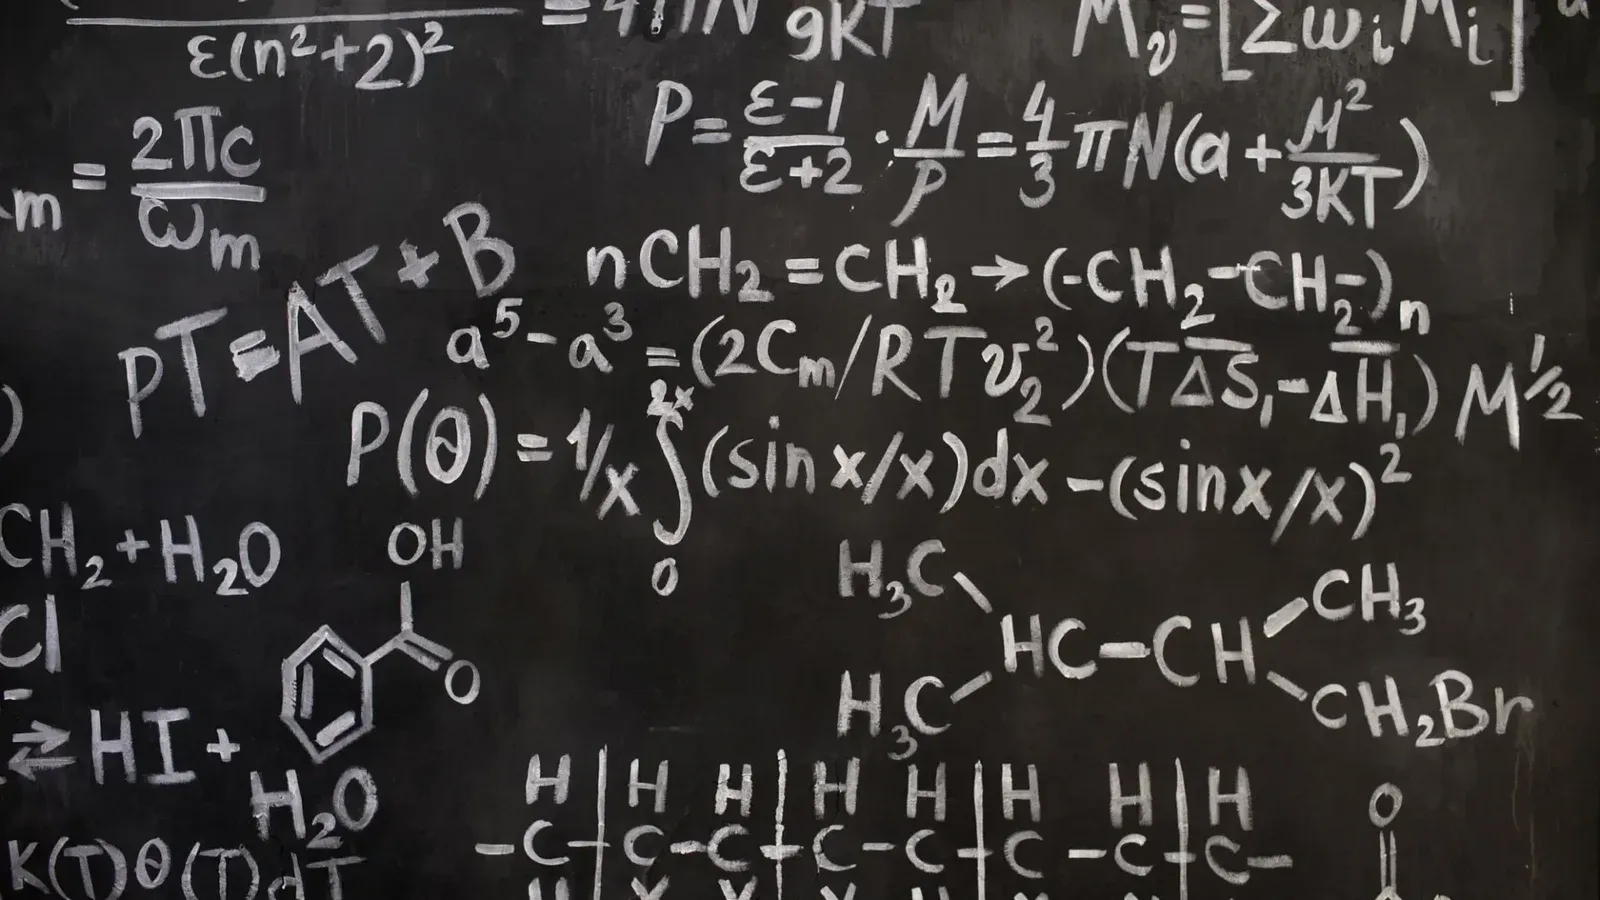 ε(n²+2)²
= 4πN
9KT
M_v = [Σω_i M_i]
m = 2πc/ω_m
P = (ε-1)/(ε+2) · M/P = 4/3 πN(a + M²/3KT)
PT = AT + B
nCH₂=CH₂→(-CH₂-CH₂-)n
a⁵-a³ = (2Cm/RTv₂²)(TΔS₁-ΔH₁) M^1/2
P(θ) = 1/x ∫₀^2x (sin x/x)dx -(sinx/x)²
CH₂+H₂O
Cl
⇄ HI + H₂O
OH
O
H₃C
CH₃
HC-CH
H₃C
CH₂Br
H H H H H H H H
-C-C-C-C-C-C-C-C-
O
K(T)θ(T)dT